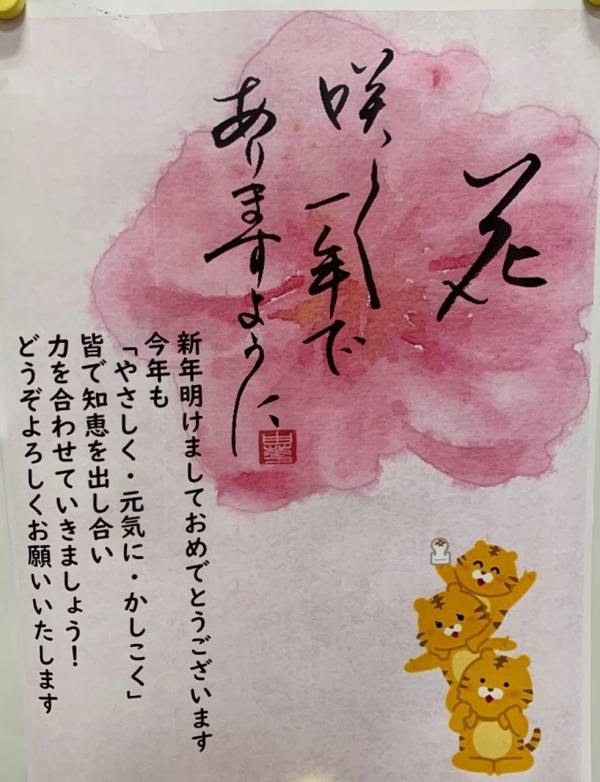 花
咲く
一年で
ありますように
新年明けましておめでとうございます
今年も
「やさしく・元気に・かしこく」
皆で知恵を出し合い
力を合わせていきましょう!
どうぞよろしくお願いいたします